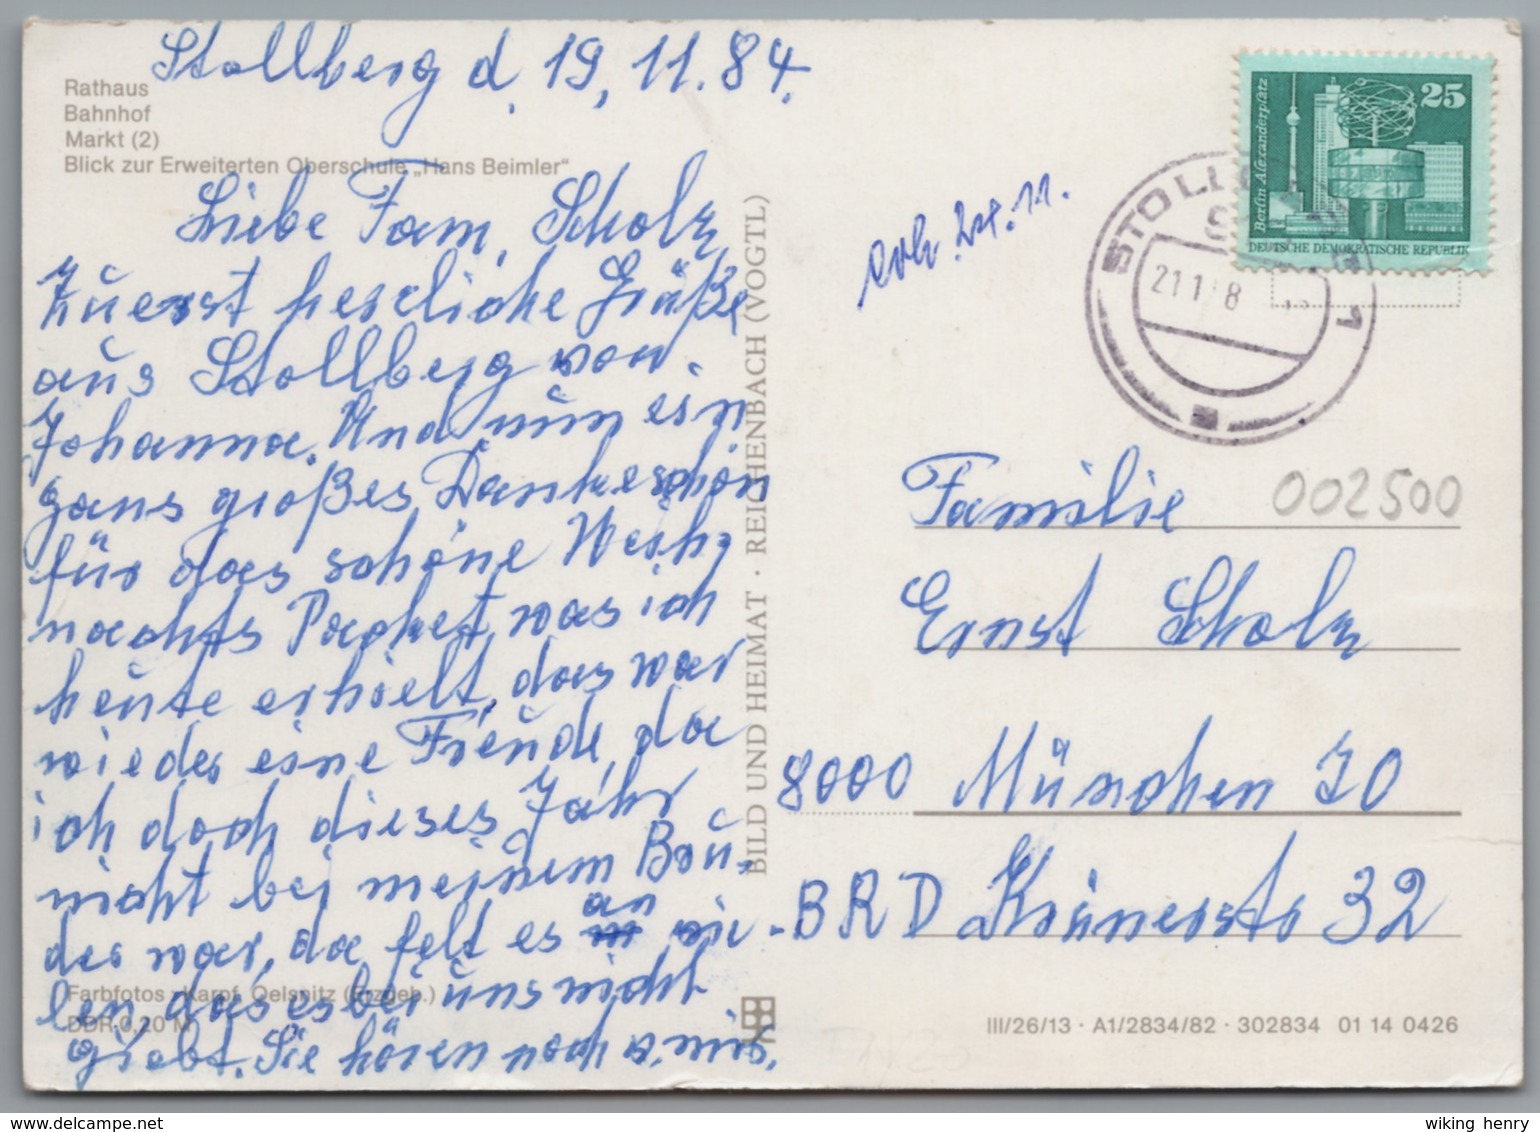 Stollberg d. 19.11.84.
Rathaus
Bahnhof
Markt (2)
Blick zur Erweiterten Oberschule „Hans Beimler“
Liebe Fam. Scholz
Zuerst herzliche Grüße
aus Stollberg von
Johanna. Und nun ein
gans großes Dankeschön
für das schöne Weih-
nachts Packet, was ich
heute erhielt, das war
wieder eine Freude, da
ich doch dieses Jahr
nicht bei meinem Bru-
der war, da felt es an vie-
len, das es bei uns nicht
giebt. Sie hören noch v. mir.
Farbfotos: Karpf, Oelsnitz (Erzgeb.)
DDR 0,20 M
BILD UND HEIMAT · REICHENBACH (VOGTL)
erh. 24.11.
25
Berlin Alexanderplatz
DEUTSCHE DEMOKRATISCHE REPUBLIK
STOLLBERG 1
21.1 8
Familie
002500
Ernst Scholz
8000 München 70
BRD Krünerstr 32
III/26/13 · A1/2834/82 · 302834 01 14 0426
wiking henry